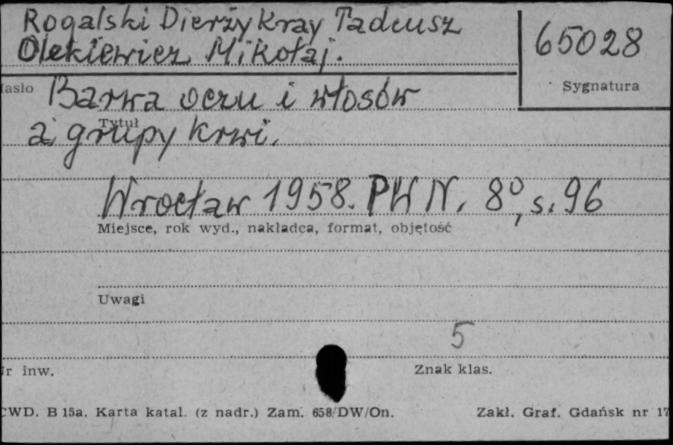 Rogalski Dierżykray Tadeusz
Olekiewicz Mikołaj.
65028
Sygnatura
asło
Barwa oczu i włosów
Tytuł
a grupy krwi.
Wrocław 1958. PWN. 8°, s. 96
Miejsce, rok wyd., nakładca, format, objętość
Uwagi
5
r inw.
Znak klas.
CWD. B 15a. Karta katal. (z nadr.) Zam. 658/DW/On.
Zakł. Graf. Gdańsk nr 17